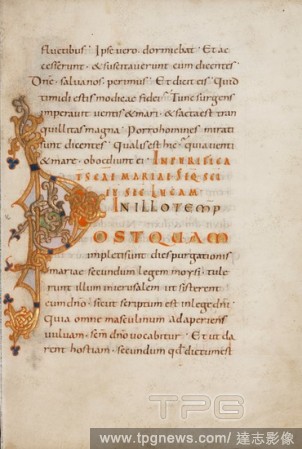 fluctibus · Ipse vero dormiebat · Et ac
cesserunt · & suscitaverunt eum dicentes
Dne · salva nos · perimus · Et dicit eis · Quid
timidi estis modicae fidei · Tunc surgens
imperavit ventis & mari · & facta est tran
quillitas magna · Porro homines mirati
sunt dicentes · Qualis est hic · quia venti
& mare · oboediunt ei · IN PURIFICA
SCAE MARIAE · SEQ SCI
EV SEC LUCAM
IN ILLO TEMP
POSTQUAM
impleti sunt dies purgationis
mariae secundum legem moysi · tule
runt illum in ierusalem ut sisterent
eum dno · sicut scriptum est in lege dni ·
Quia omne masculinum adaperiens
vulvam · scm dno vocabitur · Et ut da
rent hostiam · secundum qd dictum est
TPG
www.tpgnews.com / 達志影像